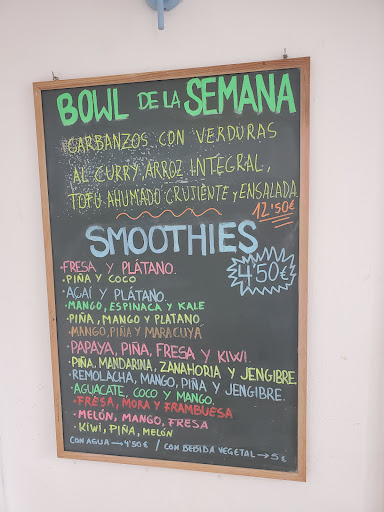 BOWL DE LA SEMANA
GARBANZOS CON VERDURAS
AL CURRY, ARROZ INTEGRAL,
TOFU AHUMADO CRUJIENTE Y ENSALADA
12'50€
SMOOTHIES
4'50€
·FRESA Y PLÁTANO.
·PIÑA Y COCO
·AÇAÍ Y PLÁTANO.
·MANGO, ESPINACA Y KALE
·PIÑA, MANGO Y PLATANO
·MANGO, PIÑA Y MARACUYÁ
·PAPAYA, PIÑA, FRESA Y KIWI.
·PIÑA, MANDARINA, ZANAHORIA Y JENGIBRE.
·REMOLACHA, MANGO, PIÑA Y JENGIBRE.
·AGUACATE, COCO Y MANGO.
·FRESA, MORA Y FRAMBUESA
·MELÓN, MANGO, FRESA
·KIWI, PIÑA, MELÓN
CON AGUA → 4'50€ / CON BEBIDA VEGETAL → 5€